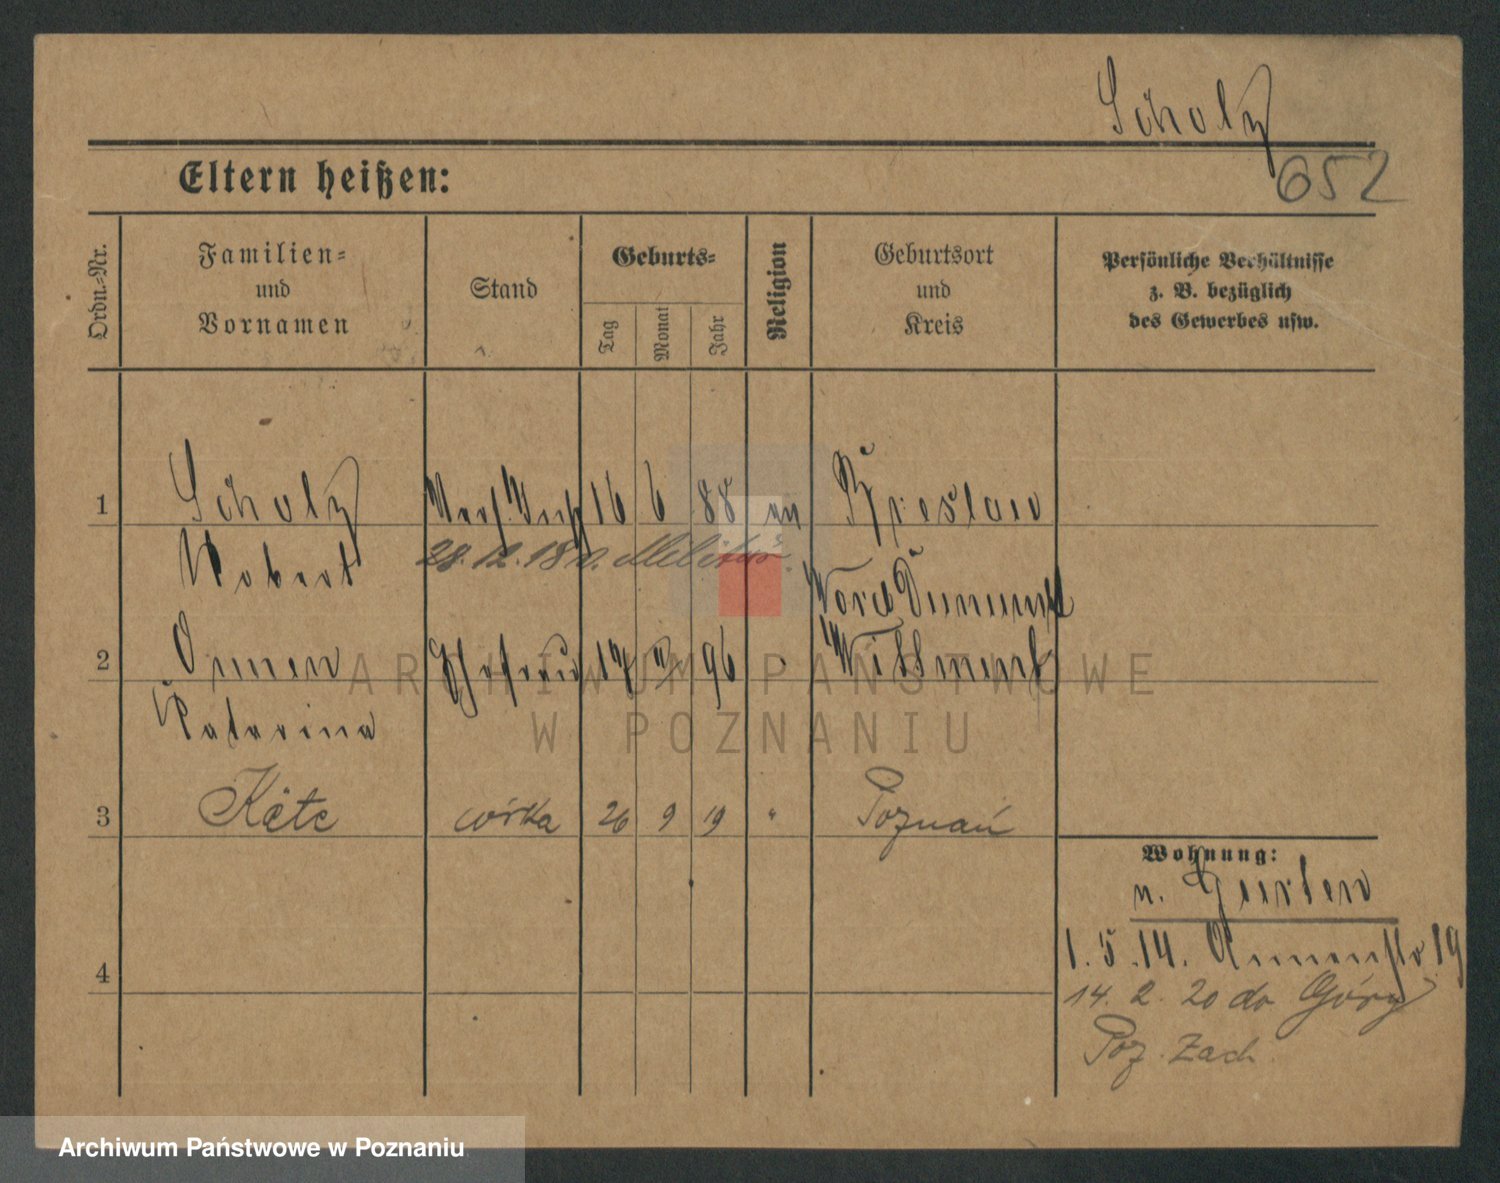 Scholz
652
Eltern heißen:
Ordn.-Nr.
Familien- und Vornamen
Stand
Geburts-
Tag
Monat
Jahr
Religion
Geburtsort und Kreis
Persönliche Verhältnisse z. B. bezüglich des Gewerbes usw.
1 Scholz 16 6 88 Breslau
Robert 28.12.18 v. Militär.
2 Ehefrau 17 96
Katarina
3 Käte córka 26 9 19 " Poznań
Wohnung:
n.
4
1.5.14. 19
14. 2. 20 do Góry
Poz. Zach
ARCHIWUM PAŃSTWOWE
W POZNANIU
Archiwum Państwowe w Poznaniu